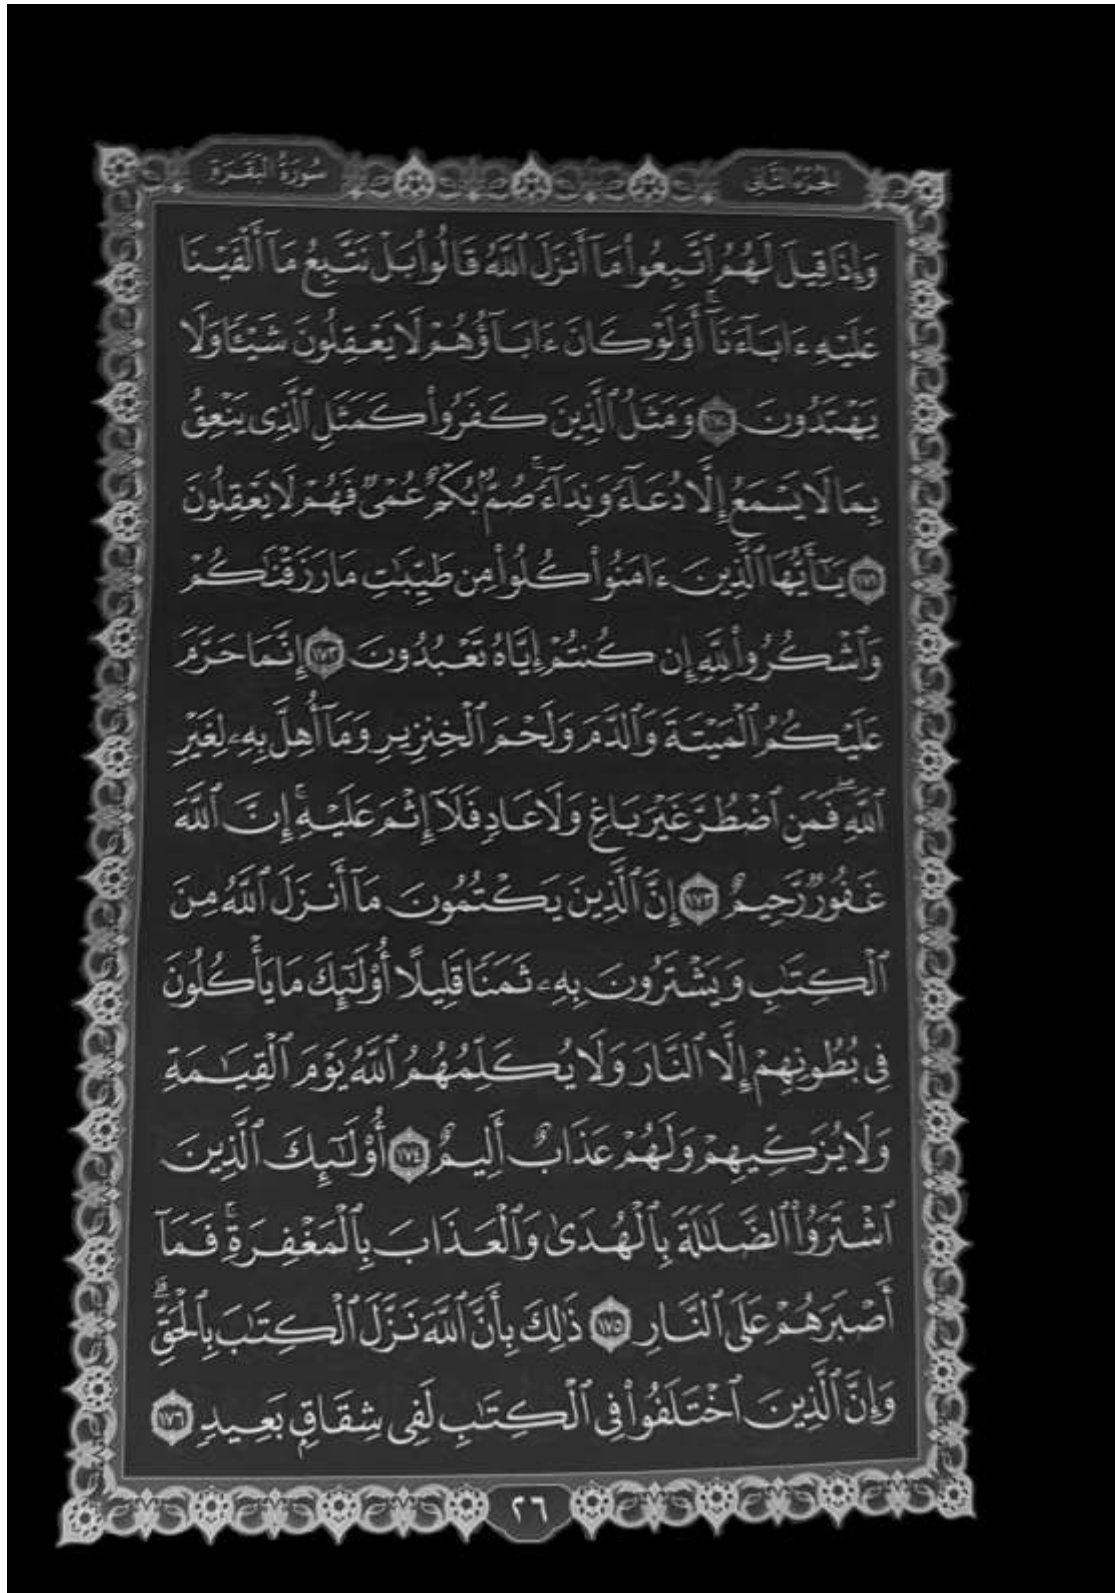 الجزء الثاني
سورة البقرة
وَإِذَا قِيلَ لَهُمُ ٱتَّبِعُوا۟ مَآ أَنزَلَ ٱللَّهُ قَالُوا۟ بَلْ نَتَّبِعُ مَآ أَلْفَيْنَا
عَلَيْهِ ءَابَآءَنَآ ۚ أَوَلَوْ كَانَ ءَابَآؤُهُمْ لَا يَعْقِلُونَ شَيْـًٔا وَلَا
يَهْتَدُونَ ١٧٠ وَمَثَلُ ٱلَّذِينَ كَفَرُوا۟ كَمَثَلِ ٱلَّذِى يَنْعِقُ
بِمَا لَا يَسْمَعُ إِلَّا دُعَآءً وَنِدَآءً ۚ صُمٌّۢ بُكْمٌ عُمْىٌ فَهُمْ لَا يَعْقِلُونَ
١٧١ يَـٰٓأَيُّهَا ٱلَّذِينَ ءَامَنُوا۟ كُلُوا۟ مِن طَيِّبَـٰتِ مَا رَزَقْنَـٰكُمْ
وَٱشْكُرُوا۟ لِلَّهِ إِن كُنتُمْ إِيَّاهُ تَعْبُدُونَ ١٧٢ إِنَّمَا حَرَّمَ
عَلَيْكُمُ ٱلْمَيْتَةَ وَٱلدَّمَ وَلَحْمَ ٱلْخِنزِيرِ وَمَآ أُهِلَّ بِهِۦ لِغَيْرِ
ٱللَّهِ ۖ فَمَنِ ٱضْطُرَّ غَيْرَ بَاغٍ وَلَا عَادٍ فَلَآ إِثْمَ عَلَيْهِ ۚ إِنَّ ٱللَّهَ
غَفُورٌ رَّحِيمٌ ١٧٣ إِنَّ ٱلَّذِينَ يَكْتُمُونَ مَآ أَنزَلَ ٱللَّهُ مِنَ
ٱلْكِتَـٰبِ وَيَشْتَرُونَ بِهِۦ ثَمَنًا قَلِيلًا أُو۟لَـٰٓئِكَ مَا يَأْكُلُونَ
فِى بُطُونِهِمْ إِلَّا ٱلنَّارَ وَلَا يُكَلِّمُهُمُ ٱللَّهُ يَوْمَ ٱلْقِيَـٰمَةِ
وَلَا يُزَكِّيهِمْ وَلَهُمْ عَذَابٌ أَلِيمٌ ١٧٤ أُو۟لَـٰٓئِكَ ٱلَّذِينَ
ٱشْتَرَوُا۟ ٱلضَّلَـٰلَةَ بِٱلْهُدَىٰ وَٱلْعَذَابَ بِٱلْمَغْفِرَةِ ۚ فَمَآ
أَصْبَرَهُمْ عَلَى ٱلنَّارِ ١٧٥ ذَٰلِكَ بِأَنَّ ٱللَّهَ نَزَّلَ ٱلْكِتَـٰبَ بِٱلْحَقِّ ۗ
وَإِنَّ ٱلَّذِينَ ٱخْتَلَفُوا۟ فِى ٱلْكِتَـٰبِ لَفِى شِقَاقٍۭ بَعِيدٍ ١٧٦
٢٦